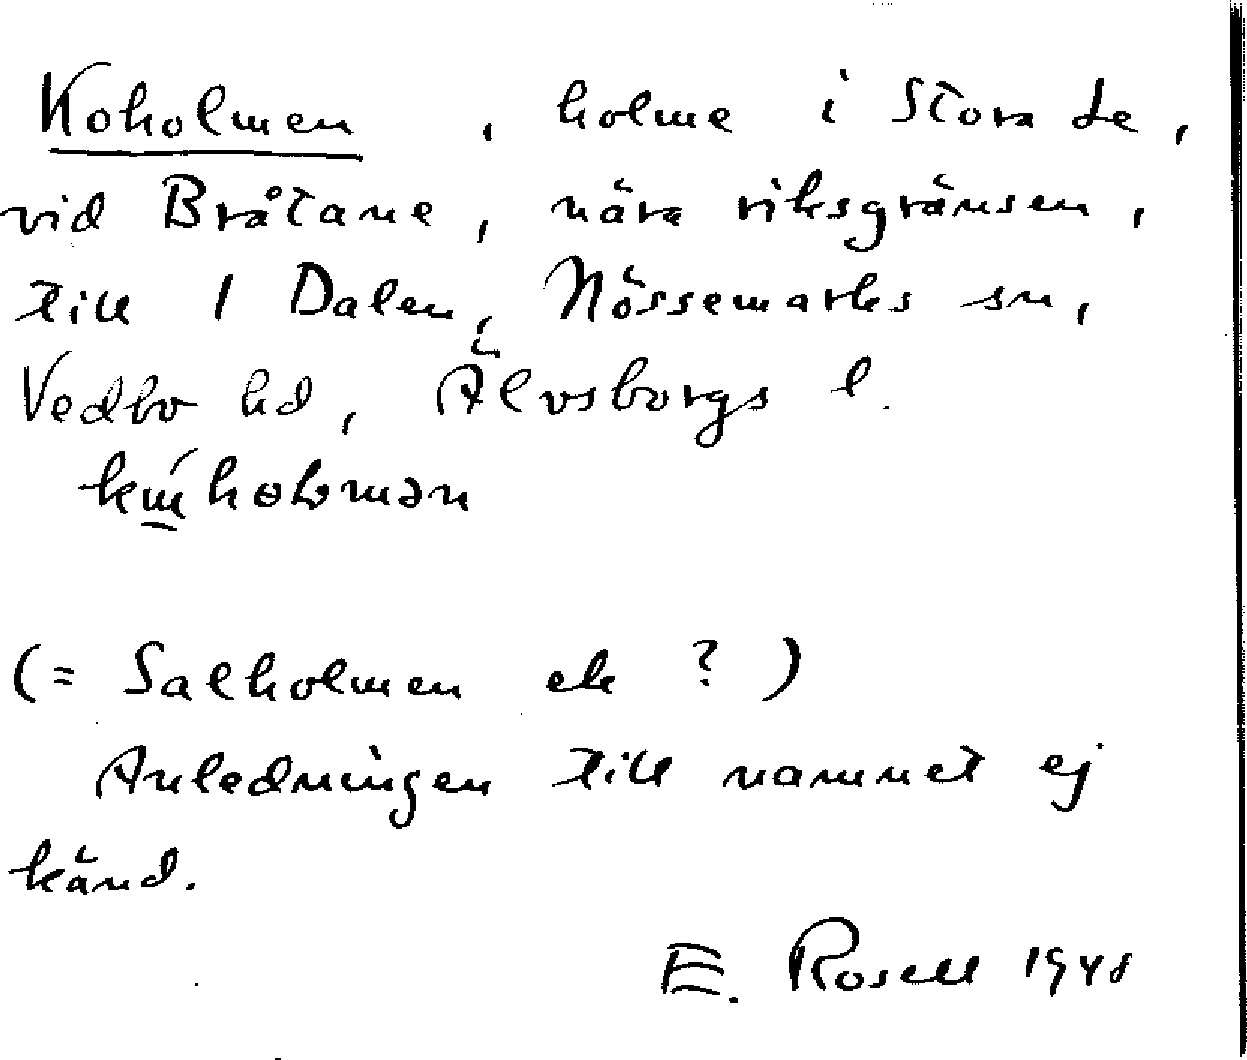 Koholmen, holme i Stora Le,
vid Bråtane, nära riksgränsen,
till 1 Dalen, Nössemarks sn,
Vedbo hd, Älvsborgs l.
(= Salholmen ek ?)
Anledningen till namnet ej
känd.
E. Rosell 1948